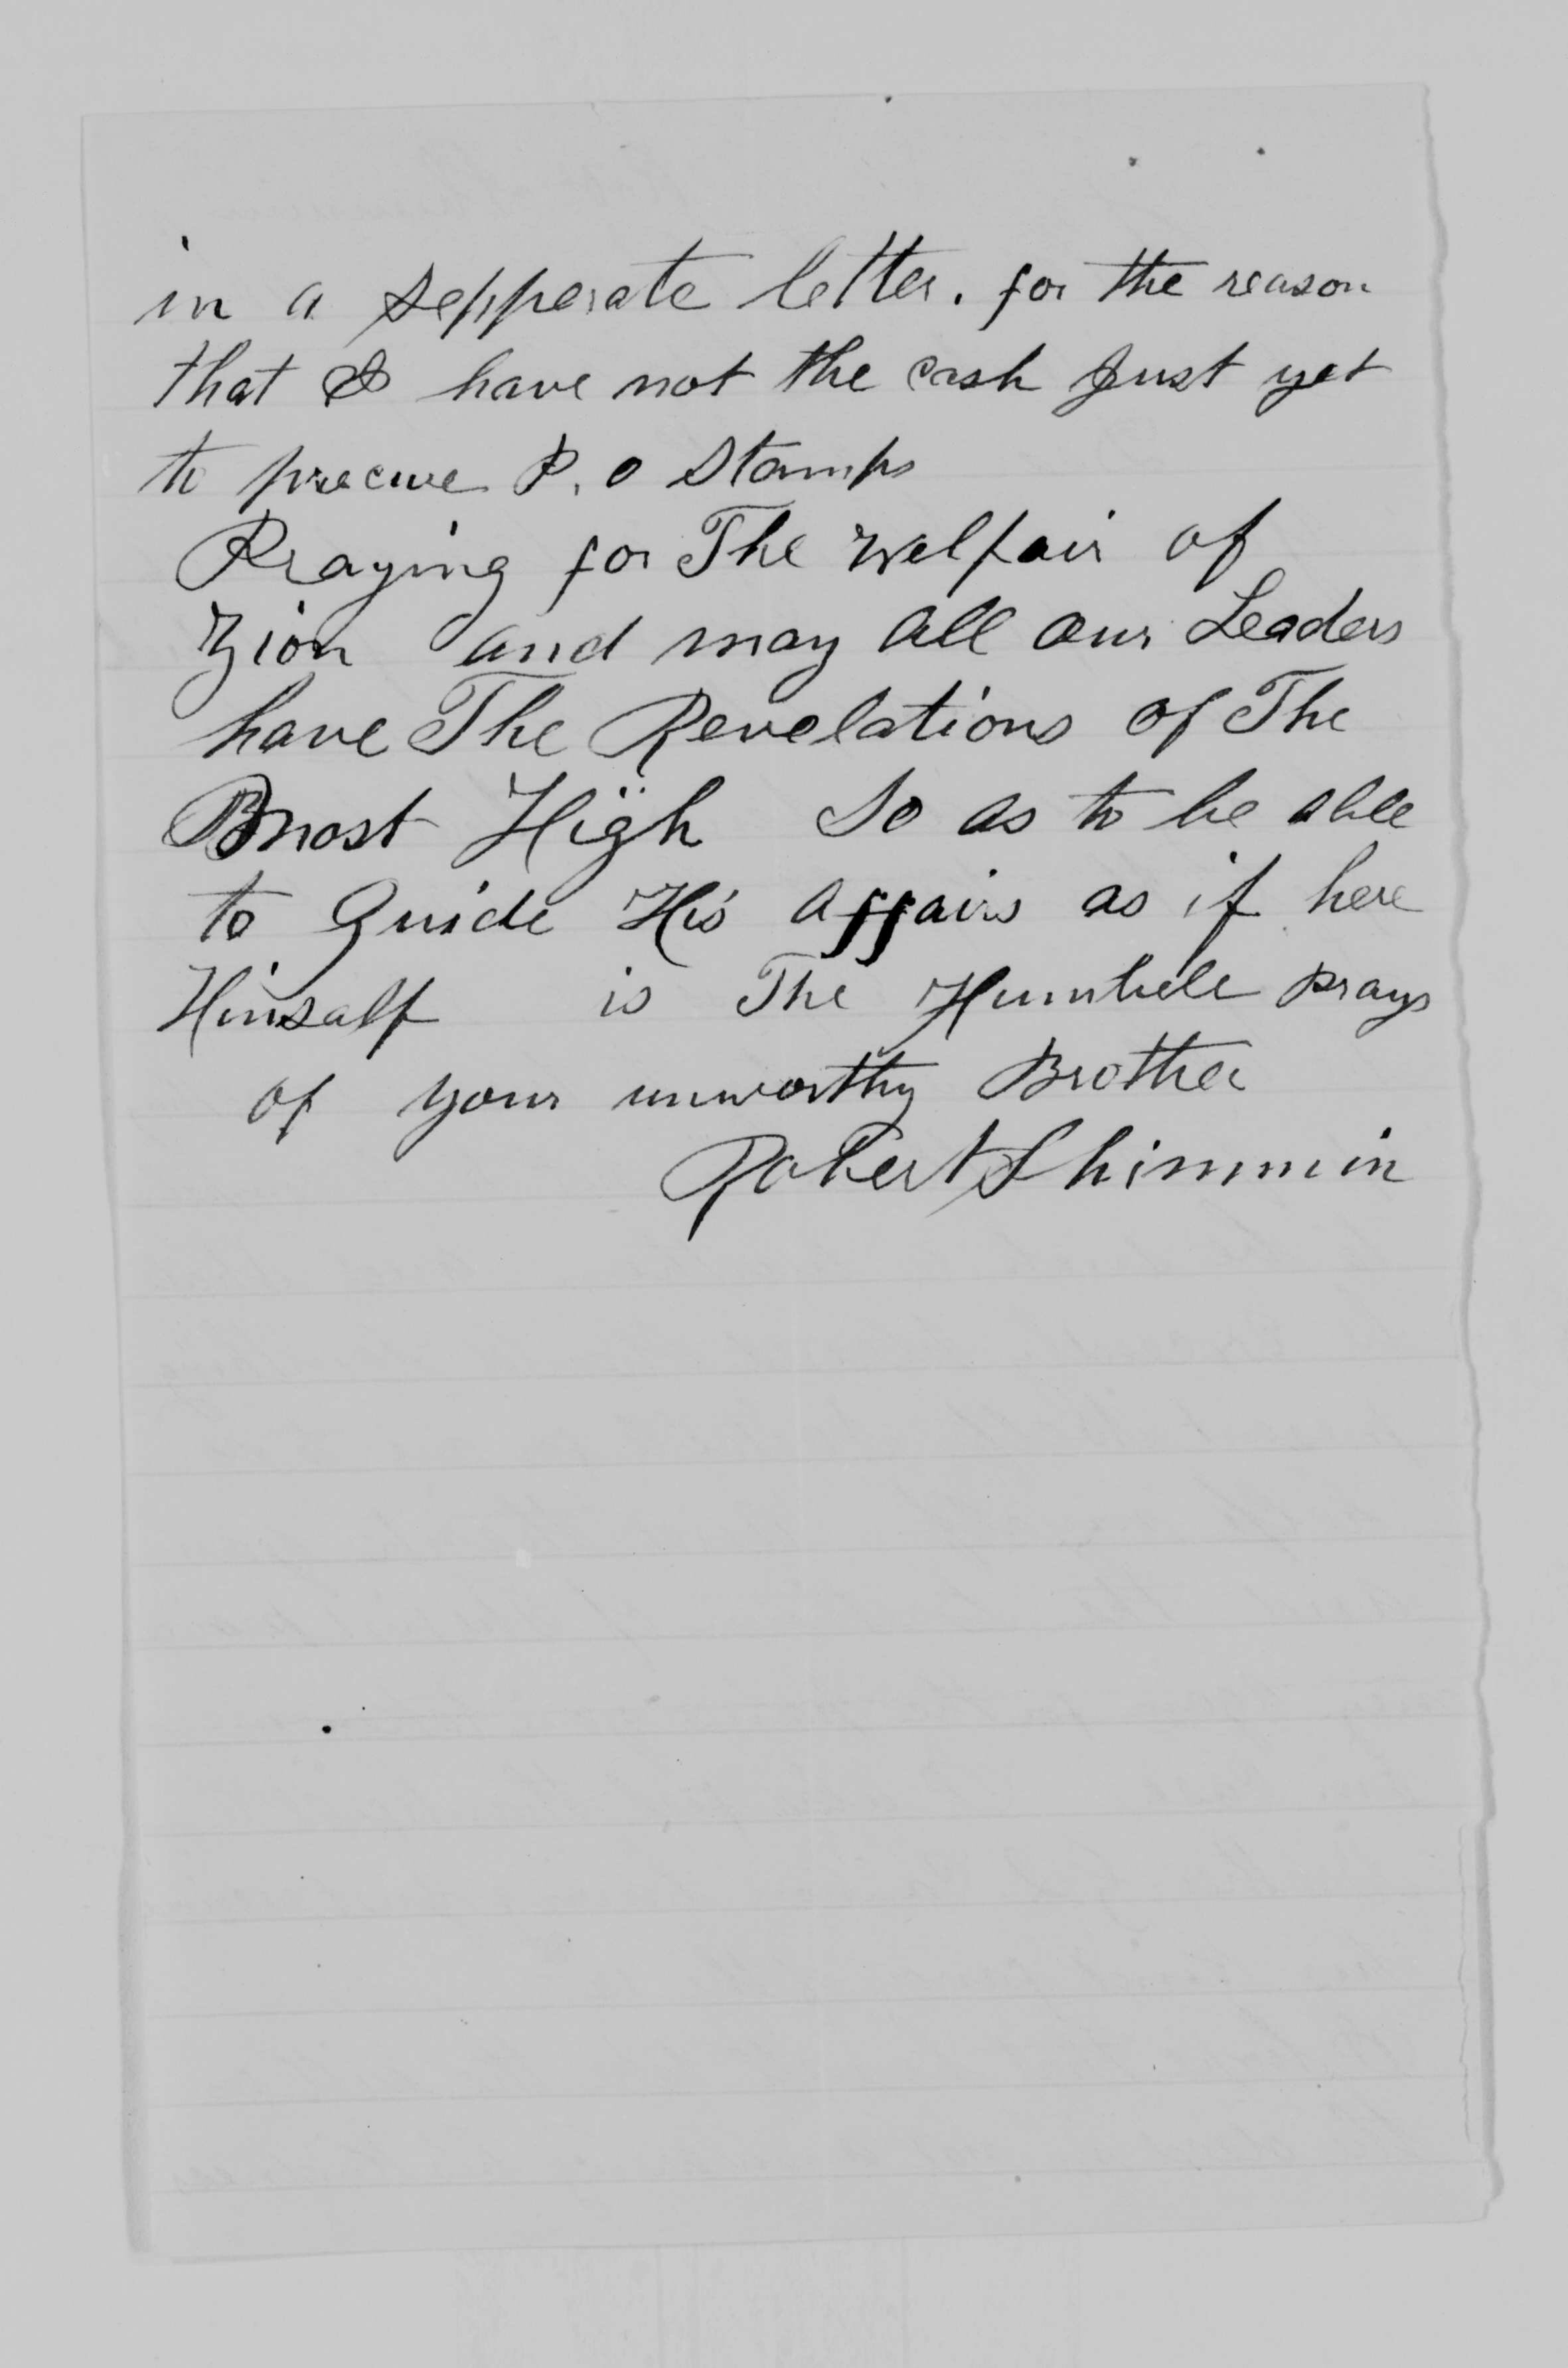 in a sepperate letter. for the reason
that I have not the cash Just yet
to precure P. O Stamps
Praying for The welfair of
Zion and may all our Leaders
have The Revelations of The
most High So as to be able
to Guide His affairs as if here
Himsalf is The Humbele prays
of your unworthy Brother
Robert Shimmin